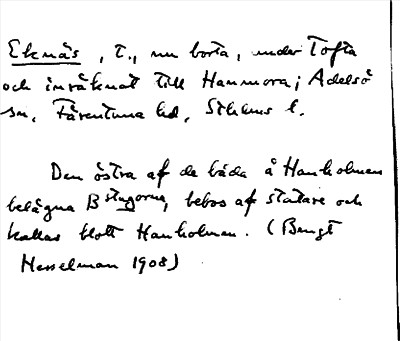 Eknäs, t., nu borta, under Tofta
och inräknat till Hammora; Adelsö
sn, Färentuna hd, Sthlms l.
Den östra af de båda å Hanholmen
belägna Bstugorna, bebos af statare och
kallas blott Hanholmen. (Bengt
Hesselman 1908)